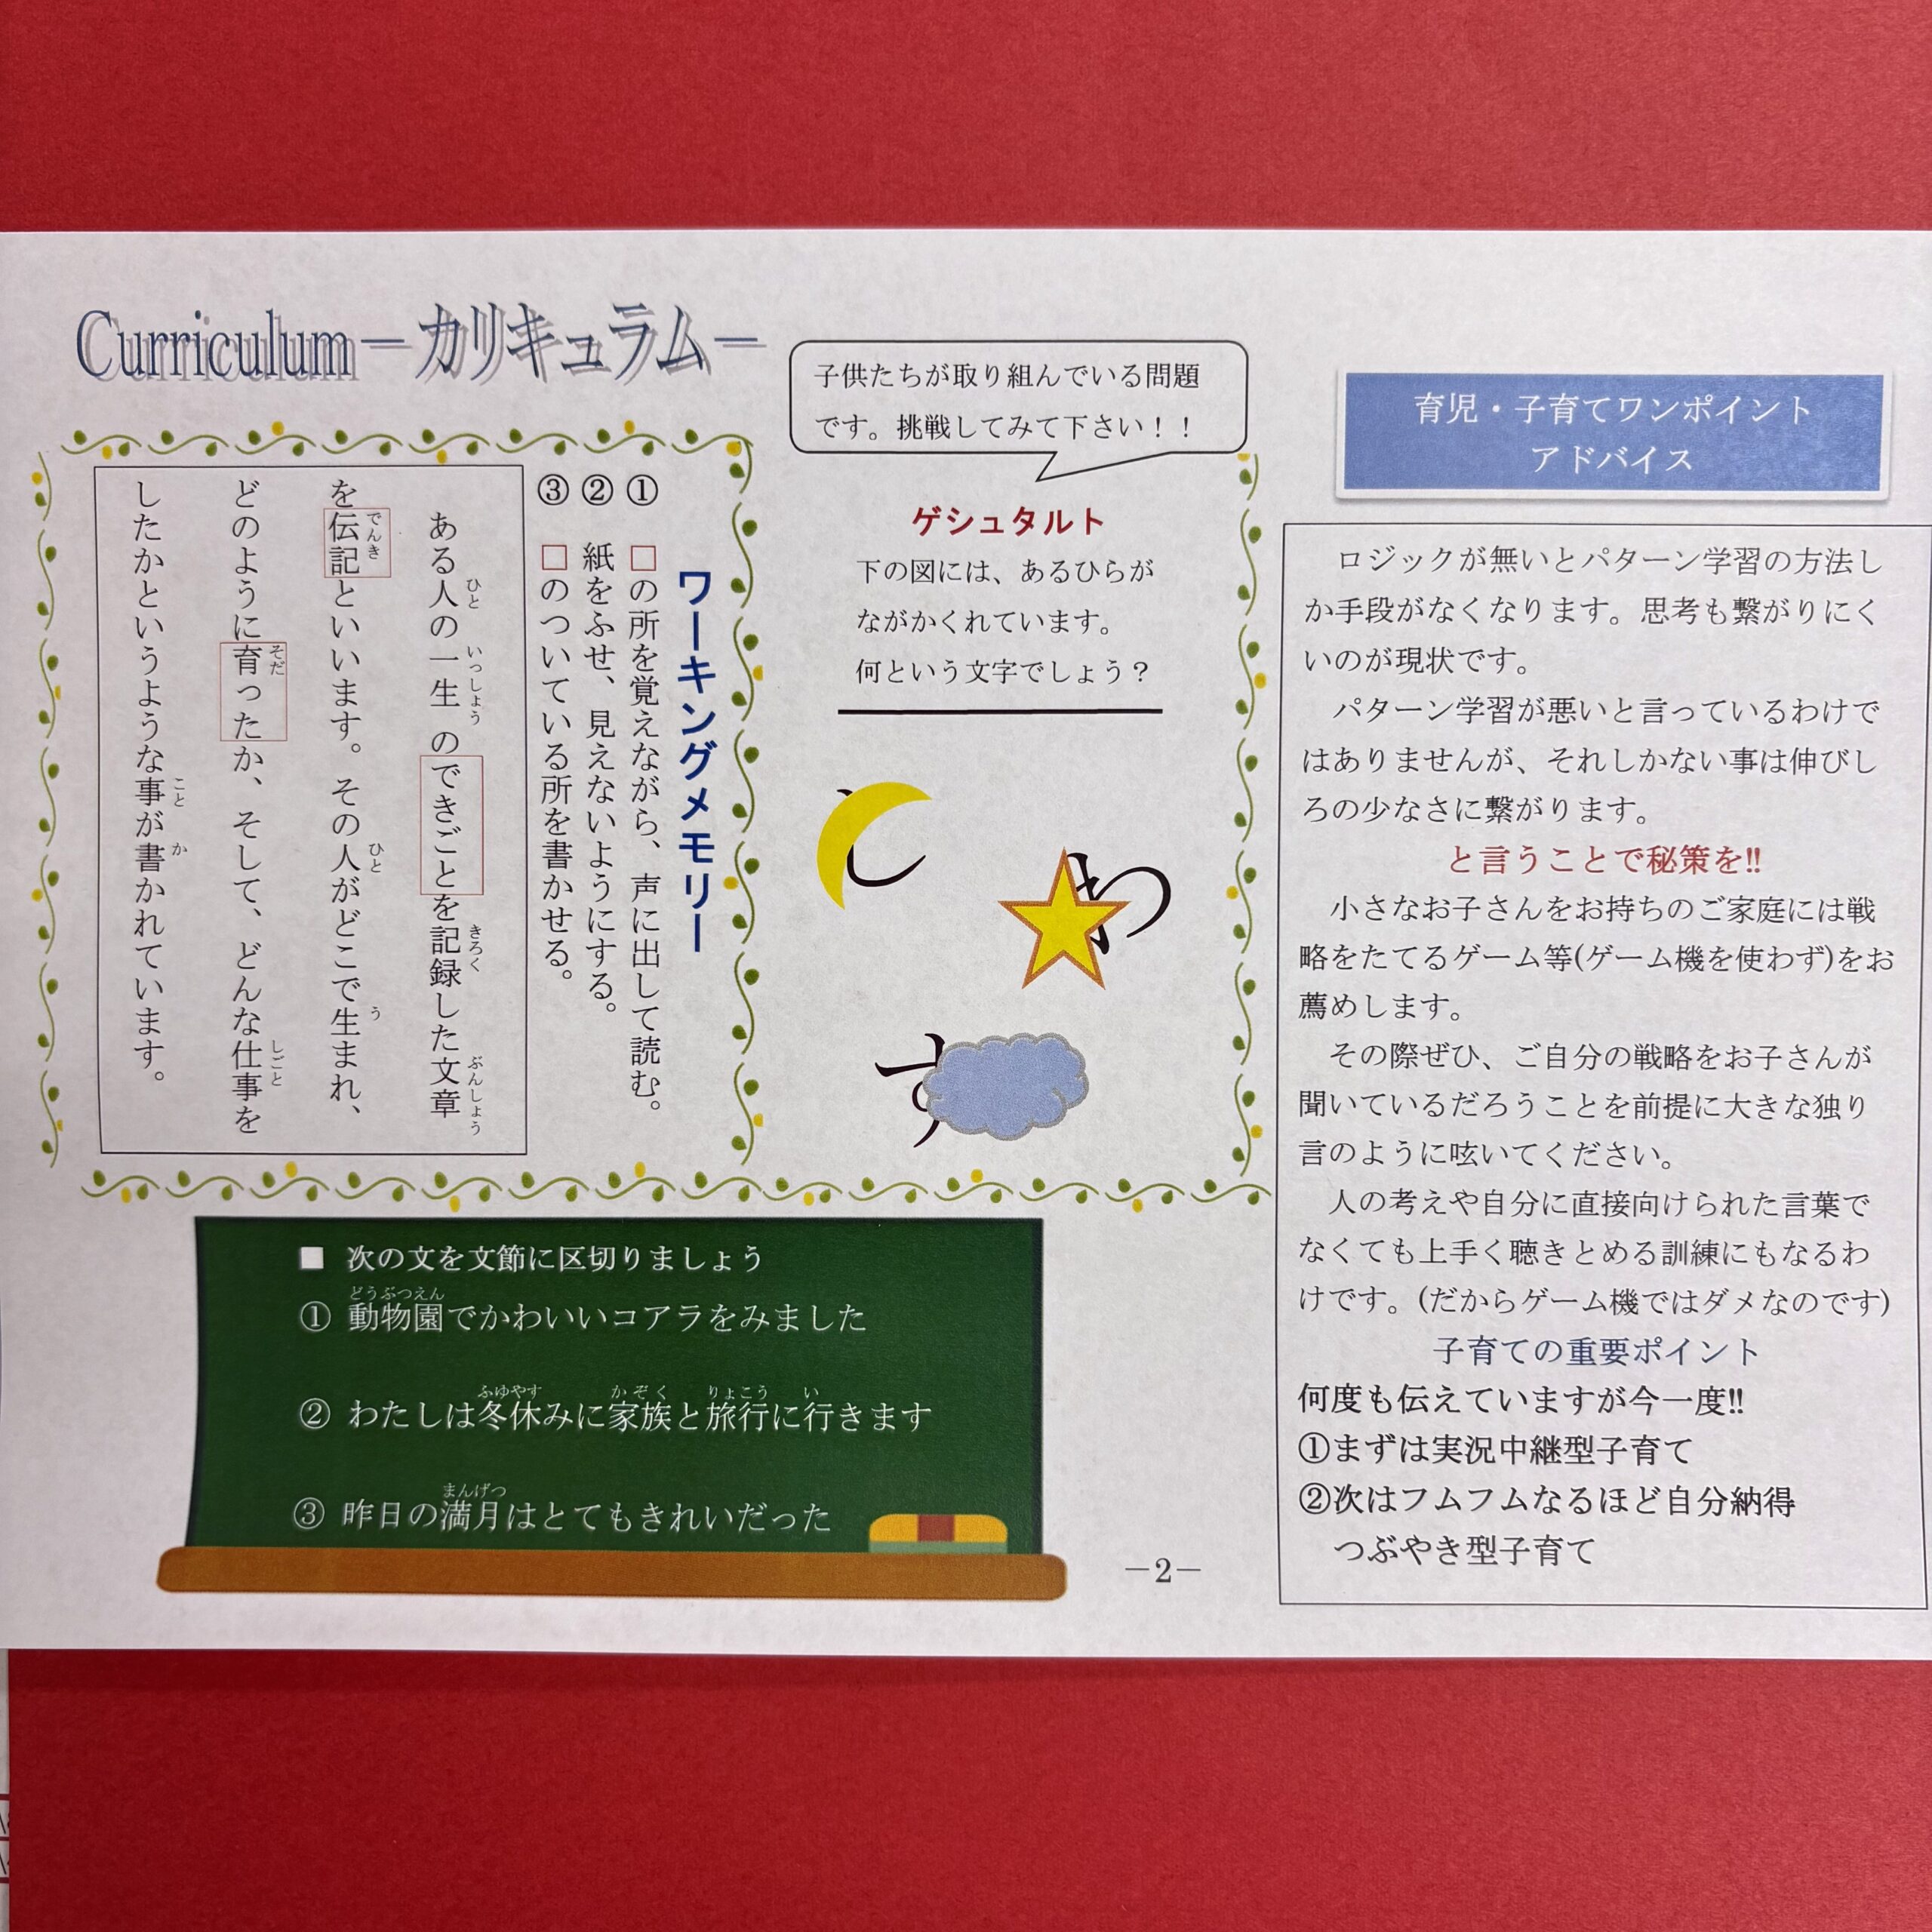 Curriculum－カリキュラム－
子供たちが取り組んでいる問題
です。挑戦してみて下さい！！
ワーキングメモリー
① □の所を覚えながら、声に出して読む。
② 紙をふせ、見えないようにする。
③ □のついている所を書かせる。
ある人の一生のできごとを記録した文章
ひと いっしょう きろく ぶんしょう
を伝記といいます。その人がどこで生まれ、
でんき ひと う
どのように育ったか、そして、どんな仕事を
そだ しごと
したかというような事が書かれています。
こと か
ゲシュタルト
下の図には、あるひらが
ながかくれています。
何という文字でしょう？
■ 次の文を文節に区切りましょう
どうぶつえん
① 動物園でかわいいコアラをみました
ふゆやす かぞく りょこう い
② わたしは冬休みに家族と旅行に行きます
まんげつ
③ 昨日の満月はとてもきれいだった
－2－
育児・子育てワンポイント
アドバイス
ロジックが無いとパターン学習の方法し
か手段がなくなります。思考も繋がりにく
いのが現状です。
パターン学習が悪いと言っているわけで
はありませんが、それしかない事は伸びし
ろの少なさに繋がります。
と言うことで秘策を!!
小さなお子さんをお持ちのご家庭には戦
略をたてるゲーム等(ゲーム機を使わず)をお
薦めします。
その際ぜひ、ご自分の戦略をお子さんが
聞いているだろうことを前提に大きな独り
言のように呟いてください。
人の考えや自分に直接向けられた言葉で
なくても上手く聴きとめる訓練にもなるわ
けです。(だからゲーム機ではダメなのです)
子育ての重要ポイント
何度も伝えていますが今一度!!
①まずは実況中継型子育て
②次はフムフムなるほど自分納得
つぶやき型子育て